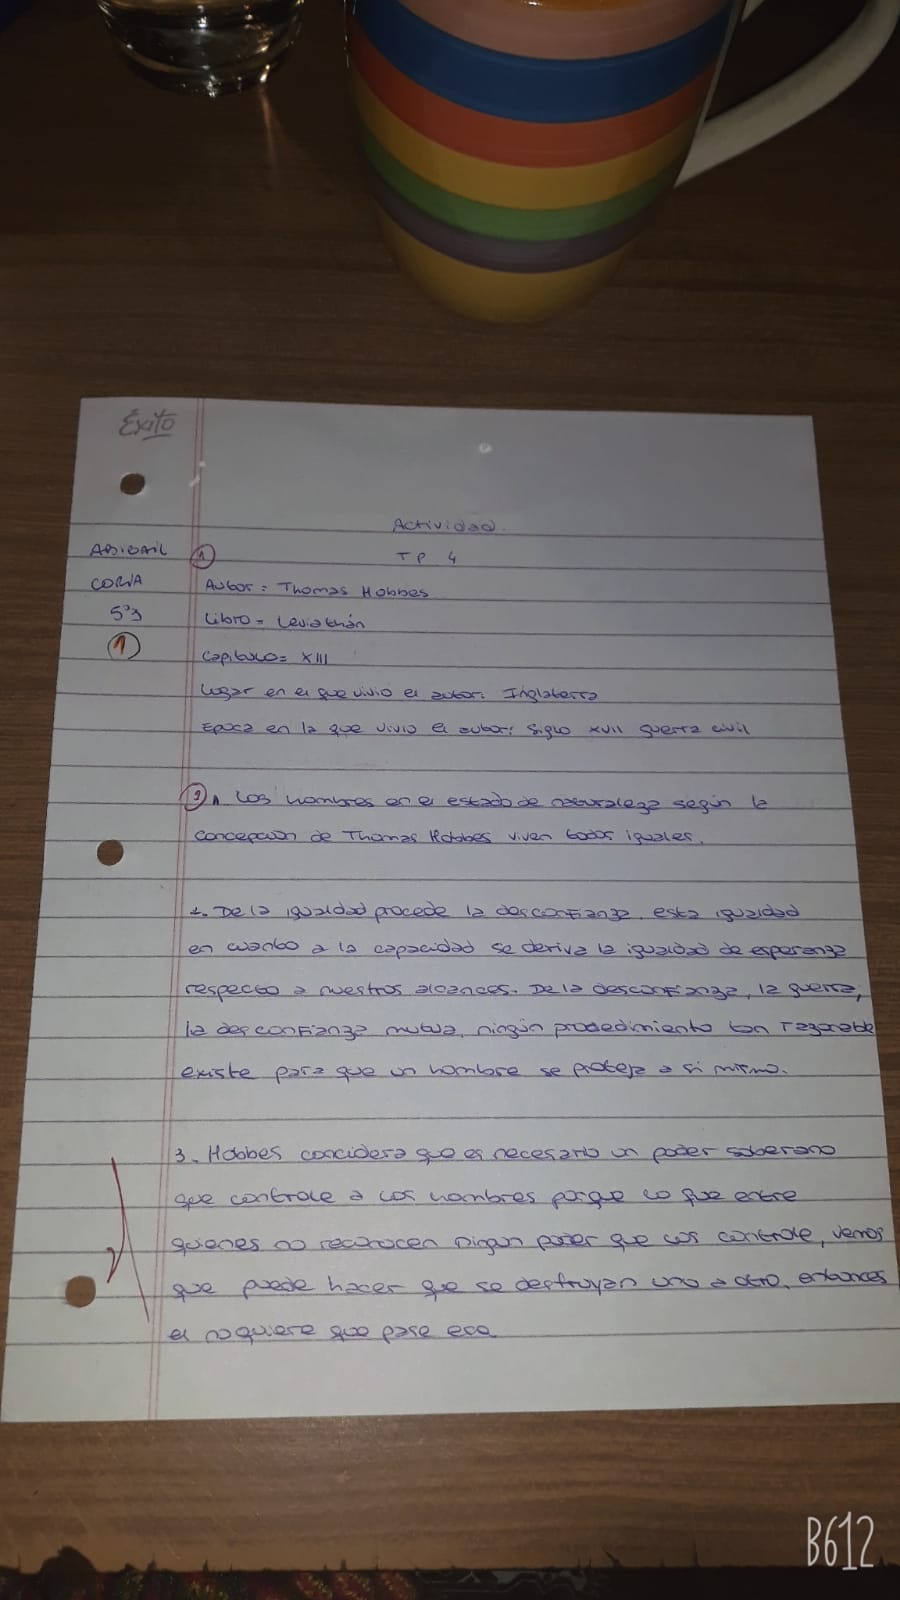 Éxito
Actividad.
TP 4
ABIGAIL
CORIA
5º3
1
1
Autor = Thomas Hobbes
Libro = Leviathán
Capitulo = XIII
Lugar en el que vivio el autor: Inglaterra
Epoca en la que vivio el autor: Siglo XVII guerra civil
2 1. Los hombres en el estado de naturaleza según la
concepción de Thomas Hobbes viven todos iguales.
2. De la igualdad procede la desconfianza, esta igualdad
en cuanto a la capacidad se deriva la igualdad de esperanza
respecto a nuestros alcances. De la desconfianza, la guerra,
la desconfianza mutua, ningún procedimiento tan razonable
existe para que un hombre se proteja a si mismo.
3. Hobbes concidera que es necesario un poder soberano
que controle a los hombres porque lo que entre
quienes no reconocen nigun poder que los controle, vemos
que puede hacer que se destruyan uno a otro, entonces
el no quiere que pase eso
B612